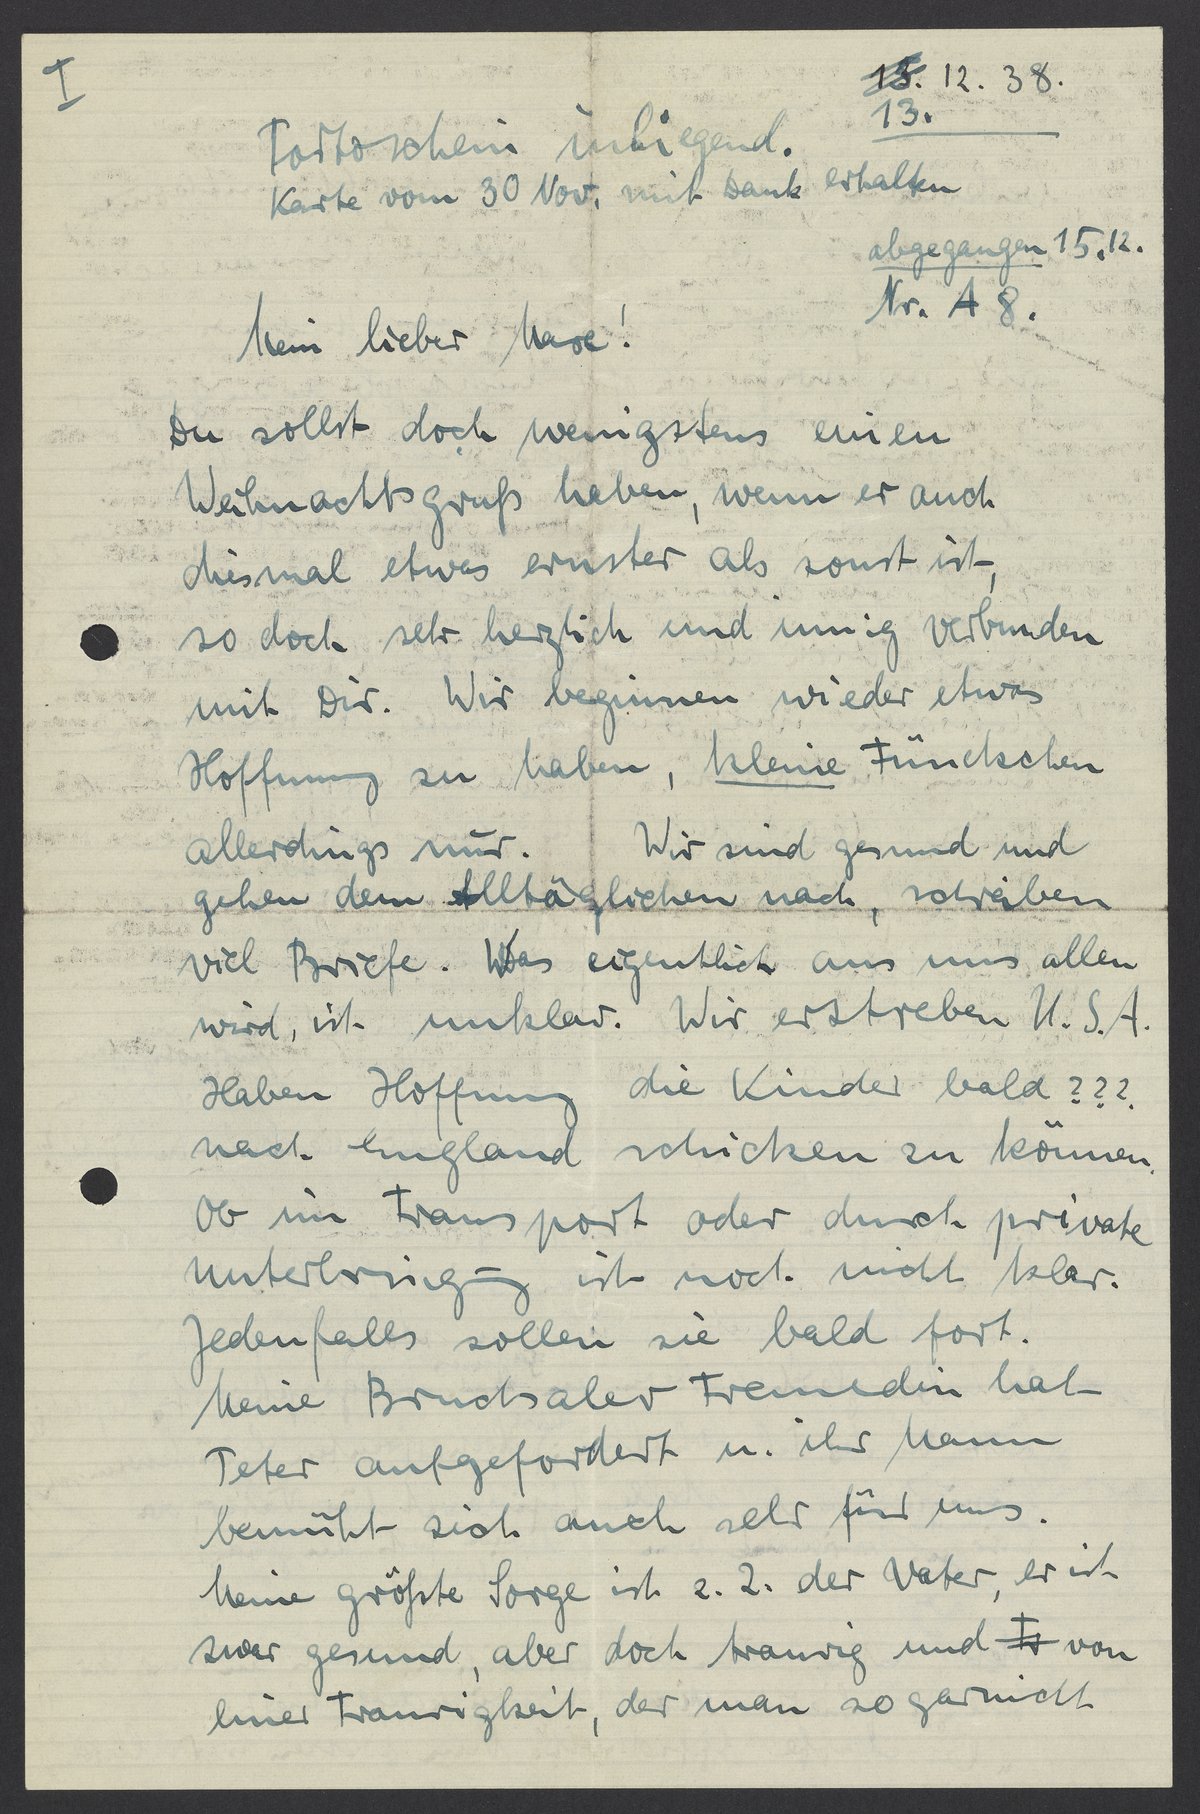 I
15. 12. 38.
13.
Portoschein inliegend.
Karte vom 30 Nov. mit Dank erhalten
abgegangen 15.12.
Nr. A 8.
Mein lieber Maxe!
Du sollst doch wenigstens einen
Weihnachtsgruß haben, wenn er auch
diesmal etwas ernster als sonst ist,
so doch sehr herzlich und innig verbunden
mit Dir. Wir beginnen wieder etwas
Hoffnung zu haben, kleine Fünckchen
allerdings nur. Wir sind gesund und
gehen dem Alltäglichen nach, schreiben
viel Briefe. Was eigentlich aus uns allen
wird, ist unklar. Wir erstreben U.S.A.
Haben Hoffnung die Kinder bald???
nach England schicken zu können.
Ob im Transport oder durch private
Unterbringung ist noch nicht klar.
Jedenfalls sollen sie bald fort.
Meine Bruchsaler Freundin hat
Peter aufgefordert u. ihr Mann
bemüht sich auch sehr für uns.
Meine größte Sorge ist z. Z. der Vater, er ist
zwar gesund, aber doch traurig und von
einer Traurigkeit, der man so garnicht